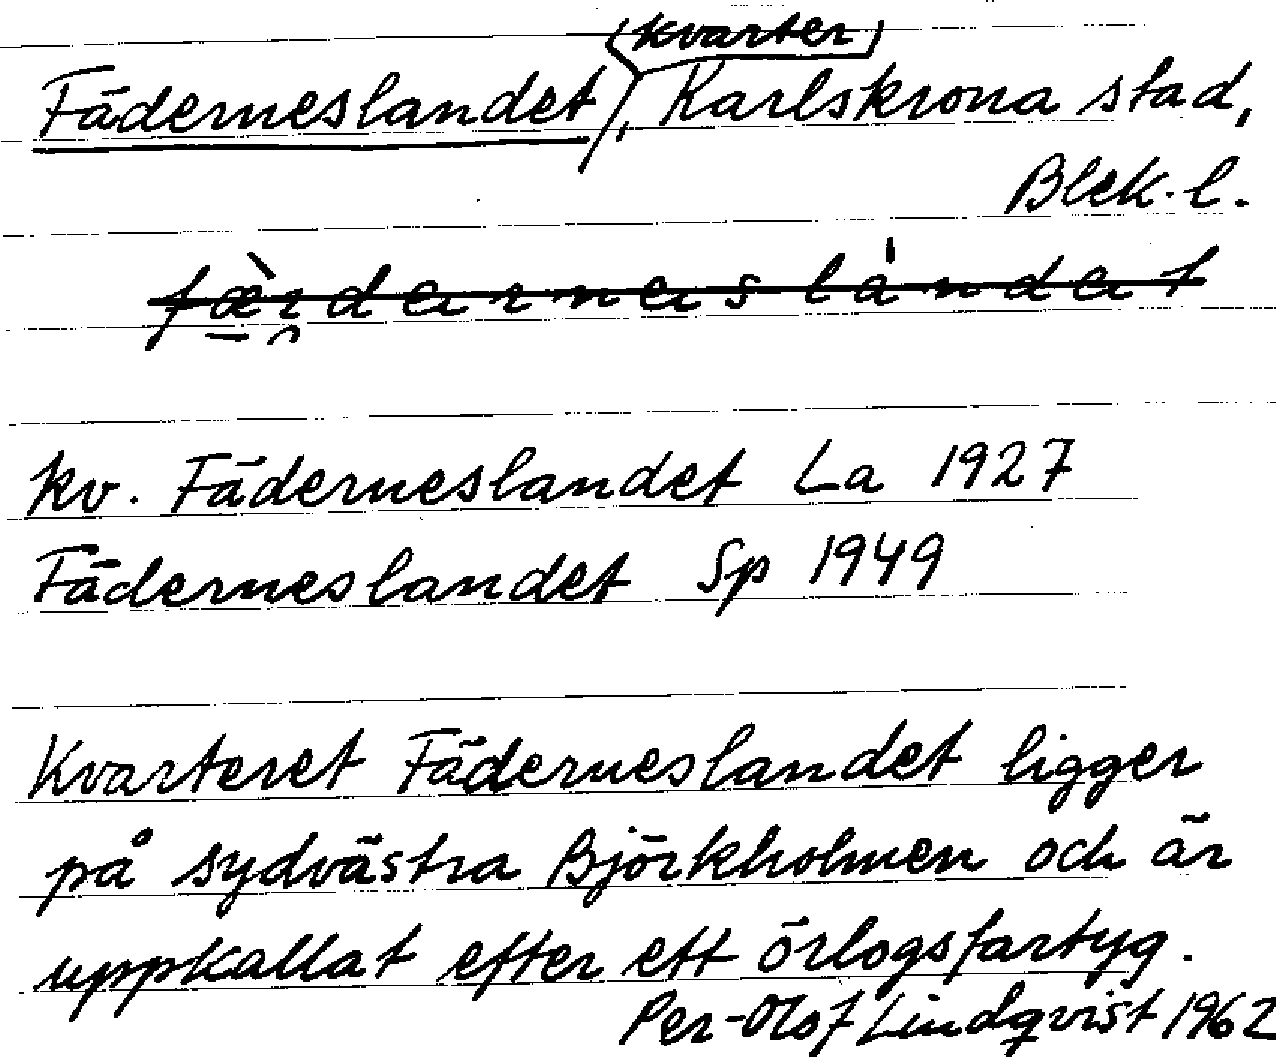 Fäderneslandet (kvarter), Karlskrona stad,
Blek. l.
kv. Fäderneslandet La 1927
Fäderneslandet Sp 1949
Kvarteret Fäderneslandet ligger
på sydvästra Björkholmen och är
uppkallat efter ett örlogsfartyg.
Per-Olof Lindqvist 1962